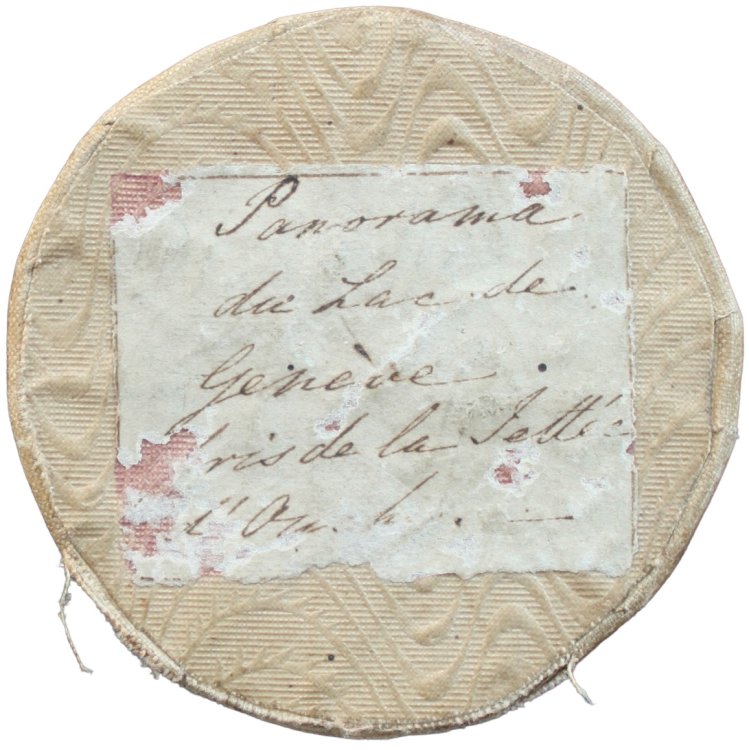 Panorama
du Lac de
Genève
pris de la Jettée
d'Ouchy. —